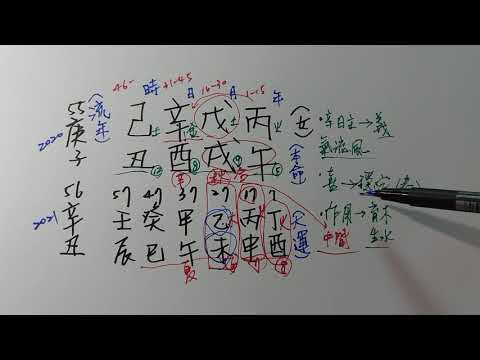 46- 時 31-45 日 16-30 月 1-15 年
55 (流年) 己土 辛金 戊土 丙火 (女) ·辛日主→義
庚 氣滋風
2020 子 丑 酉 戌 午 (本命)
·喜→
56 57 47 37 27 17 7
2021 辛 壬 癸 甲 乙 丙 丁 (大運) ·作用→
丑 辰 巳 午 未 申 酉 中間 生水
夏